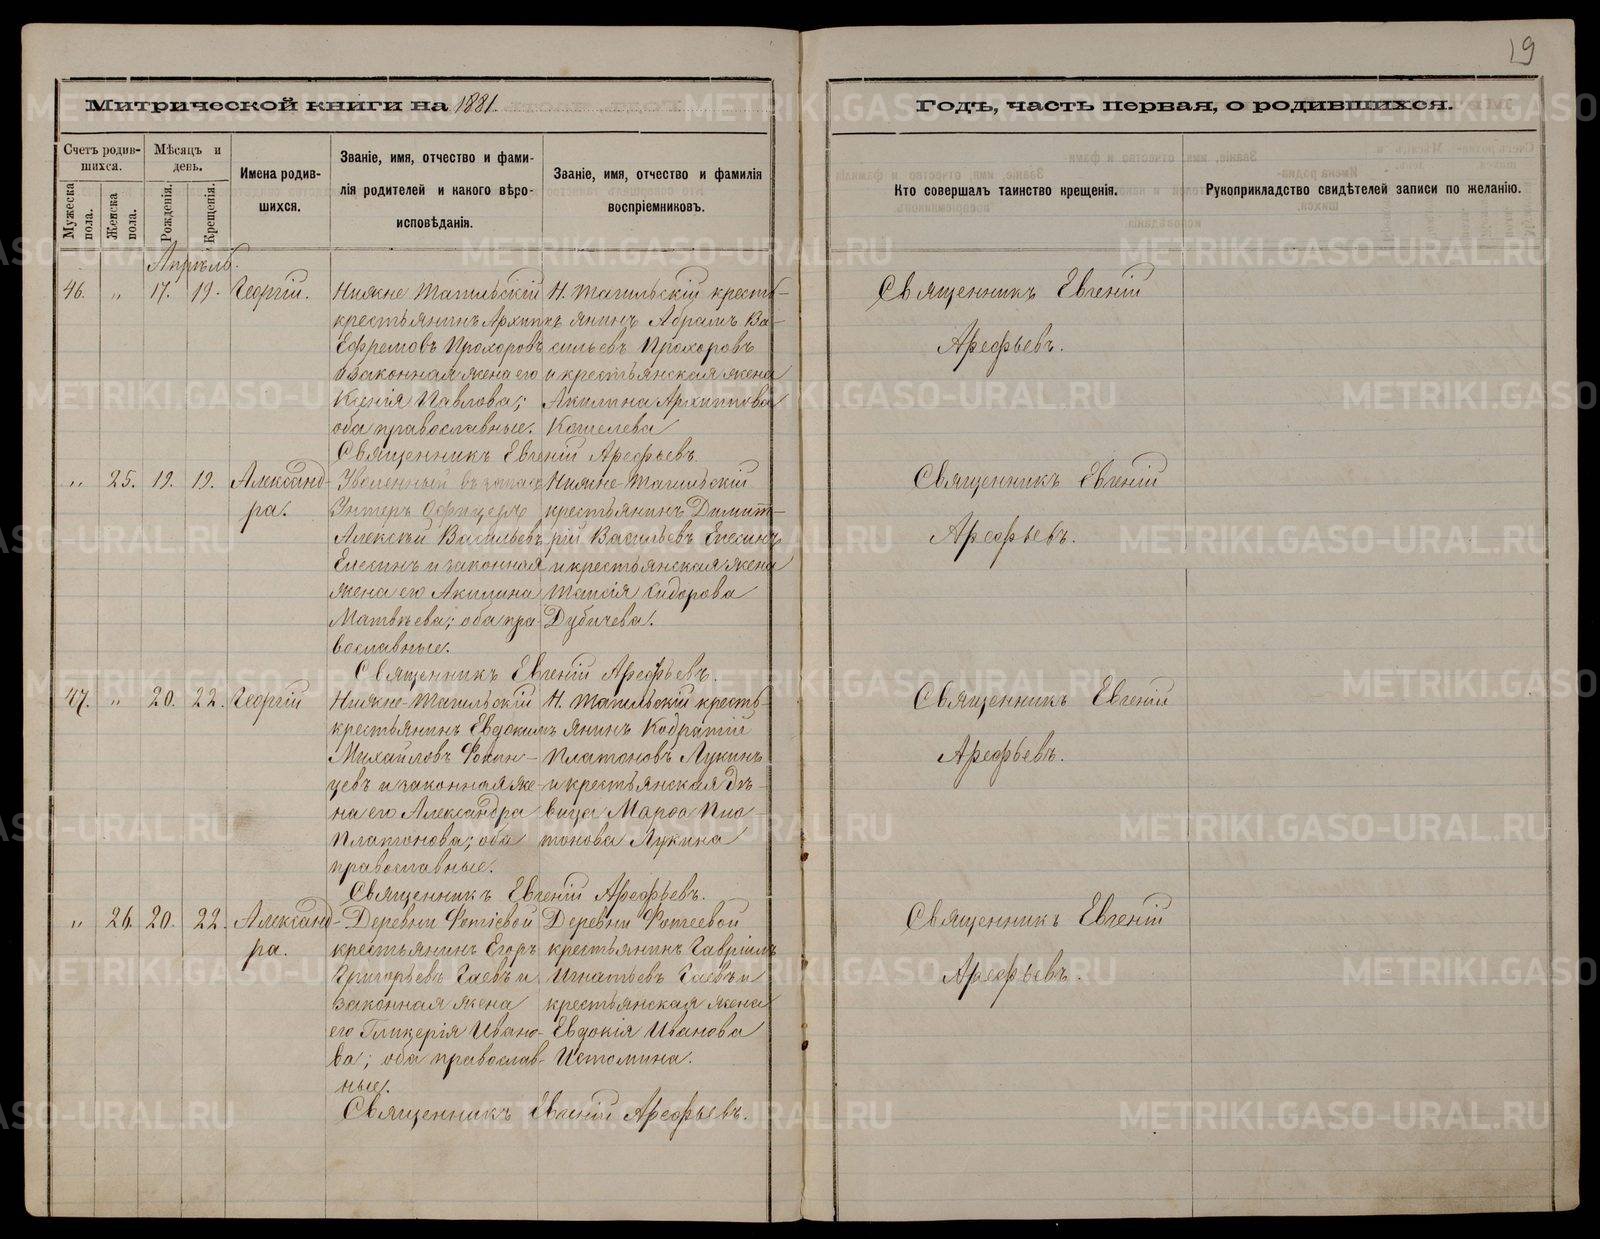 19
Митрической книги на 1881.
Годъ, часть первая, о родившихся.
Счетъ родив-
шихся.
Мужеска пола.
Женска пола.
Мѣсяцъ и
день.
Рожденія.
Крещенія.
Имена родив-
шихся.
Званіе, имя, отчество и фами-
лія родителей и какого вѣро-
исповѣданія.
Званіе, имя, отчество и фамилія
воспріемниковъ.
Кто совершалъ таинство крещенія.
Рукоприкладство свидѣтелей записи по желанію.
Апрѣль.
46. „ 17. 19. Георгій.
Нижне Тагильскій
крестьянинъ Архипъ
Ефремовъ Прохоровъ
и законная жена его
Ксенія Павлова;
оба православные.
Н. Тагильскій кресть-
янинъ Абрамъ Ва-
сильевъ Прохоровъ
и крестьянская жена
Акилина Архиппова
Кошелева
Священникъ Евгеній Арефьевъ.
Священникъ Евгеній
Арефьевъ.
„ 25. 19. 19. Александ-
ра.
Уволенный въ запасъ
Унтеръ Офицеръ
Алексѣй Васильевъ
Елесинъ и законная
жена его Акилина
Матвѣева; оба пра-
вославные.
Нижне-Тагильскій
крестьянинъ Димит-
рій Васильевъ Елесинъ
и крестьянская жена
Таисія Сидорова
Дубичева.
Священникъ Евгеній Арефьевъ.
Священникъ Евгеній
Арефьевъ.
47. „ 20. 22. Георгій
Нижне-Тагильскій
крестьянинъ Евдокимъ
Михайловъ Фокин-
цевъ и законная же-
на его Александра
Платонова; оба
православные.
Н. Тагильскій кресть-
янинъ Кодратій
Платоновъ Лукинъ
и крестьянская дѣ-
вица Марфа Пла-
тонова Лукина
Священникъ Евгеній Арефьевъ.
Священникъ Евгеній
Арефьевъ.
„ 26. 20. 22. Александ-
ра.
Деревни Фотѣевой
крестьянинъ Егоръ
Григорьевъ Гаевъ и
законная жена
его Гликерія Ивано-
ва; оба православ-
ные.
Деревни Фотеевой
крестьянинъ Гавріилъ
Игнатьевъ Гаевъ и
крестьянская жена
Евдокія Иванова
Истомина.
Священникъ Евгеній Арефьевъ.
Священникъ Евгеній
Арефьевъ.
METRIKI.GASO-URAL.RU